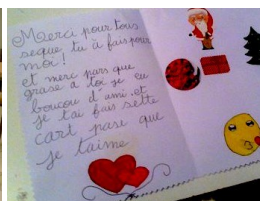 Merci pour tous
seque tu à fais pour
moi !
et merci pars que
grase a toi je eu
boucou d'ami, et
je tai fais sette
cart parse que
je taime